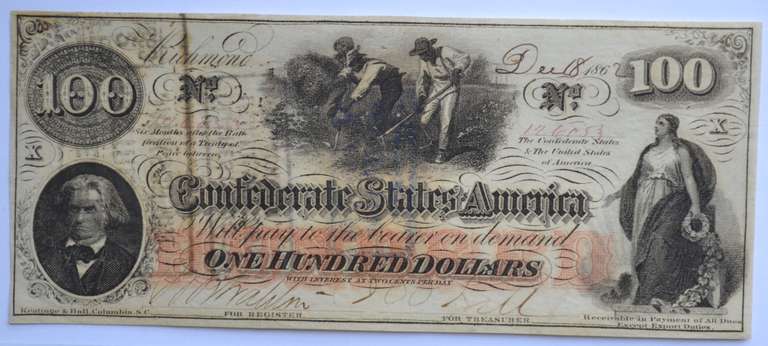 Richmond Dec 18 1862
100 No. No. 100
126053
Six Months after the Rati-
fication of a Treaty of
Peace between
The Confederate States
& The United States
of America
X X
Confederate States of America
Will pay to the bearer on demand
ONE HUNDRED DOLLARS
WITH INTEREST AT TWO CENTS PER DAY
FOR REGISTER. FOR TREASURER
Keatinge & Ball, Columbia, S.C.
Receivable in Payment of All Dues
Except Export Duties.